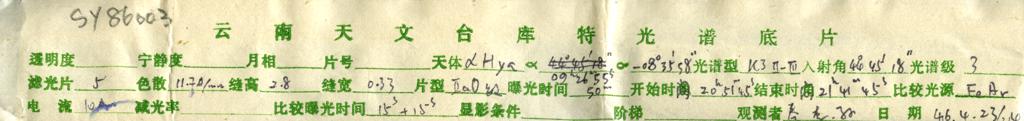 SY86003
云南天文台库特光谱底片
透明度 宁静度 月相 片号 天体 α Hya α 09h26m55s α -08°35′58″ 光谱型 K3 II-III 入射角 46°45′18″ 光谱级 3
滤光片 5 色散 11.7Å/mm 缝高 2.8 缝宽 0.33 片型 IIaO 曝光时间 50m 开始时间 20h51m45s 结束时间 21h41m45s 比较光源 FeAr
电流 10A 减光率 比较曝光时间 15s+15s 显影条件 阶梯 观测者 日期